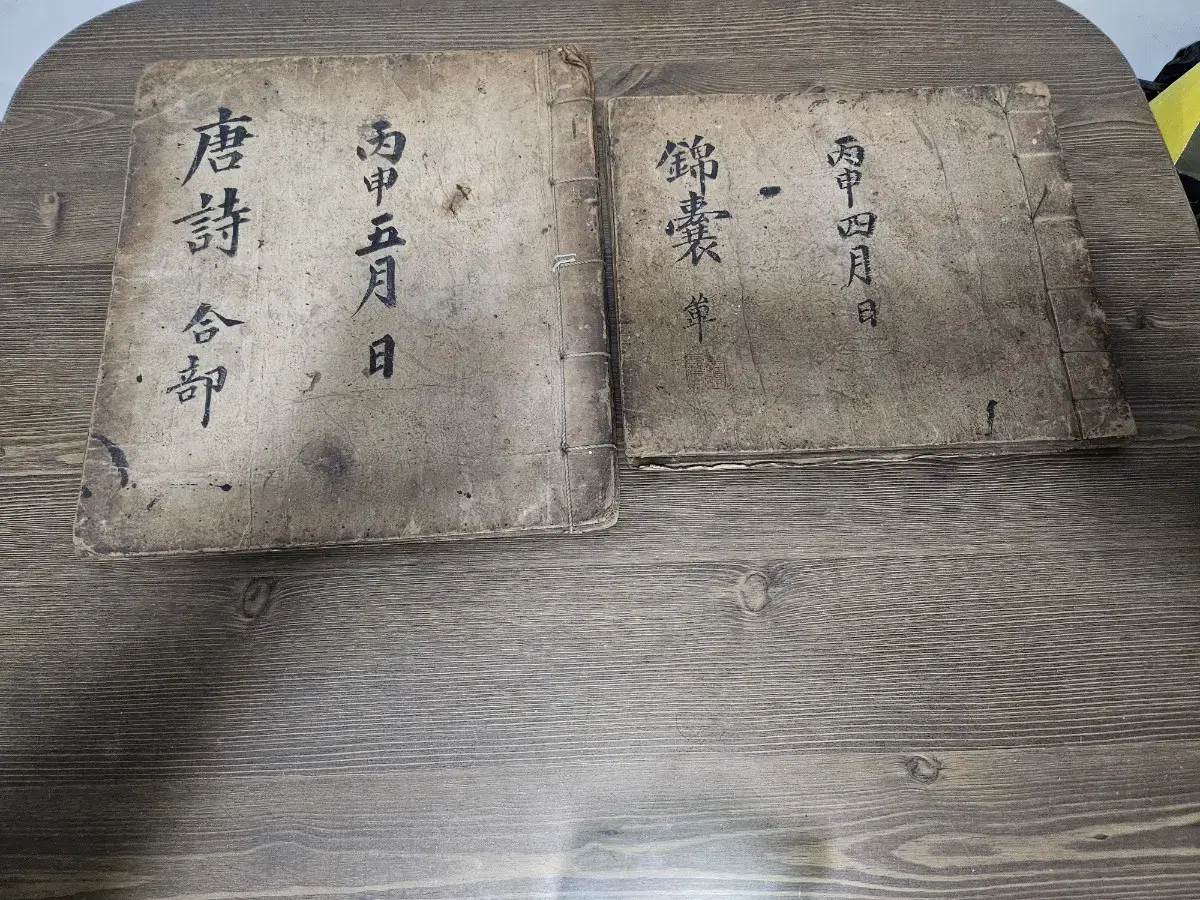 丙申五月 日
唐詩 合部
丙申四月 日
錦囊 單